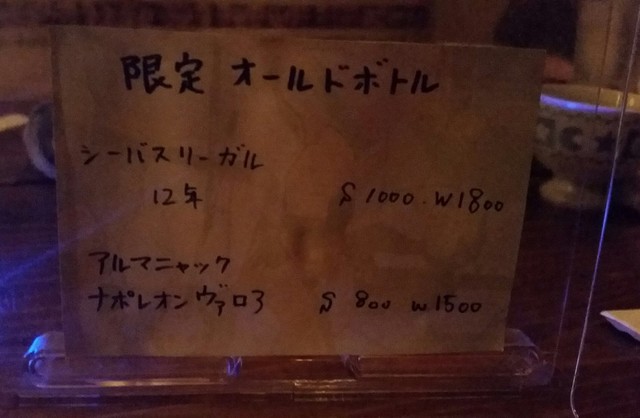 限定 オールドボトル
シーバスリーガル
12年 S 1000. W 1800
アルマニャック
ナポレオンヴァロア S 800 W 1500